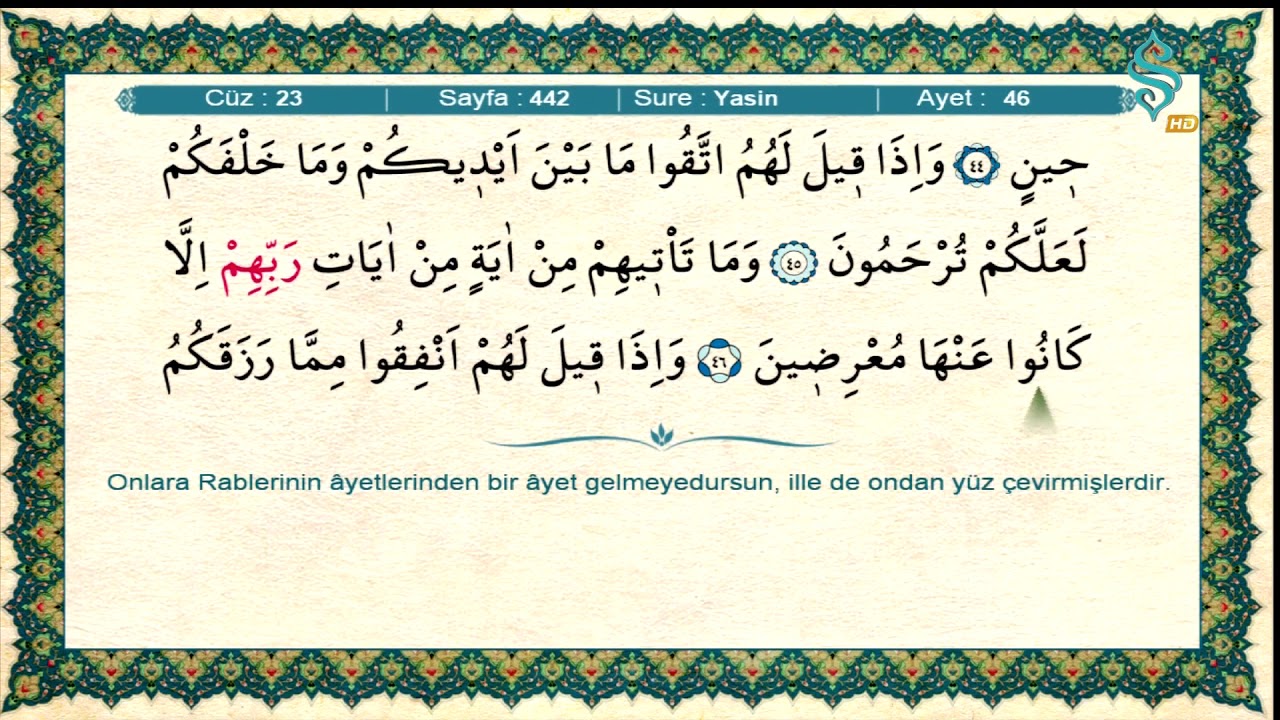 Cüz : 23 | Sayfa : 442 | Sure : Yasin | Ayet : 46
HD
حٖينٍ ٤٤ وَاِذَا قٖيلَ لَهُمُ اتَّقُوا مَا بَيْنَ اَيْدٖيكُمْ وَمَا خَلْفَكُمْ
لَعَلَّكُمْ تُرْحَمُونَ ٤٥ وَمَا تَاْتٖيهِمْ مِنْ اٰيَةٍ مِنْ اٰيَاتِ رَبِّهِمْ اِلَّا
كَانُوا عَنْهَا مُعْرِضٖينَ ٤٦ وَاِذَا قٖيلَ لَهُمْ اَنْفِقُوا مِمَّا رَزَقَكُمُ
Onlara Rablerinin âyetlerinden bir âyet gelmeyedursun, ille de ondan yüz çevirmişlerdir.